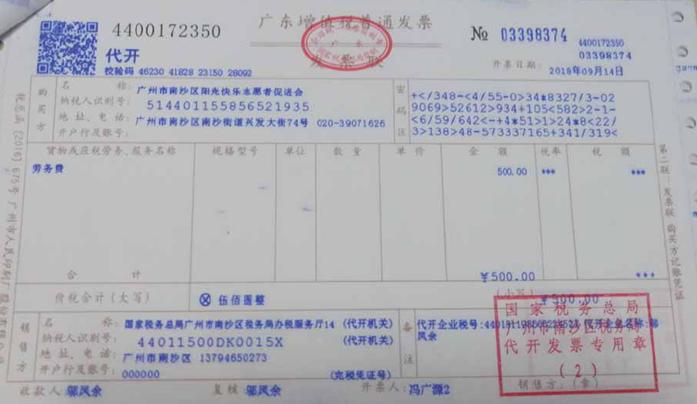 4400172350
广东增值税普通发票
№ 03398374
4400172350
03398374
代开
发票联
校验码 46230 41828 23150 26092
开票日期:2018年09月14日
购买方
名称:广州市南沙区阳光快乐志愿者促进会
纳税人识别号:514401155856521935
地址、电话:广州市南沙区南沙街道兴发大街74号 020-39071626
开户行及账号:
密码区
+</348-<4/55-0>34*8327/3-02
9069>52612>934+105<582>2-1-
<6/59/642<-+4*51>1>24*8<22/
3>138>48-573337165+341/319<
货物或应税劳务、服务名称 规格型号 单位 数量 单价 金额 税率 税额
劳务费 500.00 *** ***
合计 ¥500.00 ***
价税合计(大写) ⊗ 伍佰圆整 (小写) ¥500.00
销售方
名称:国家税务总局广州市南沙区税务局办税服务厅14 (代开机关)
纳税人识别号:44011500DK0015X (代开机关)
地址、电话:广州市南沙区 13794650273
开户行及账号:000000 (完税凭证号)
备注
代开企业税号: 代开企业名称:邬
凤余
国家税务总局
广州市南沙区税务局
代开发票专用章
(2)
收款人:邬凤余 复核:邬凤余 开票人:冯广源2 销售方:(章)
第二联:发票联 购买方记账凭证